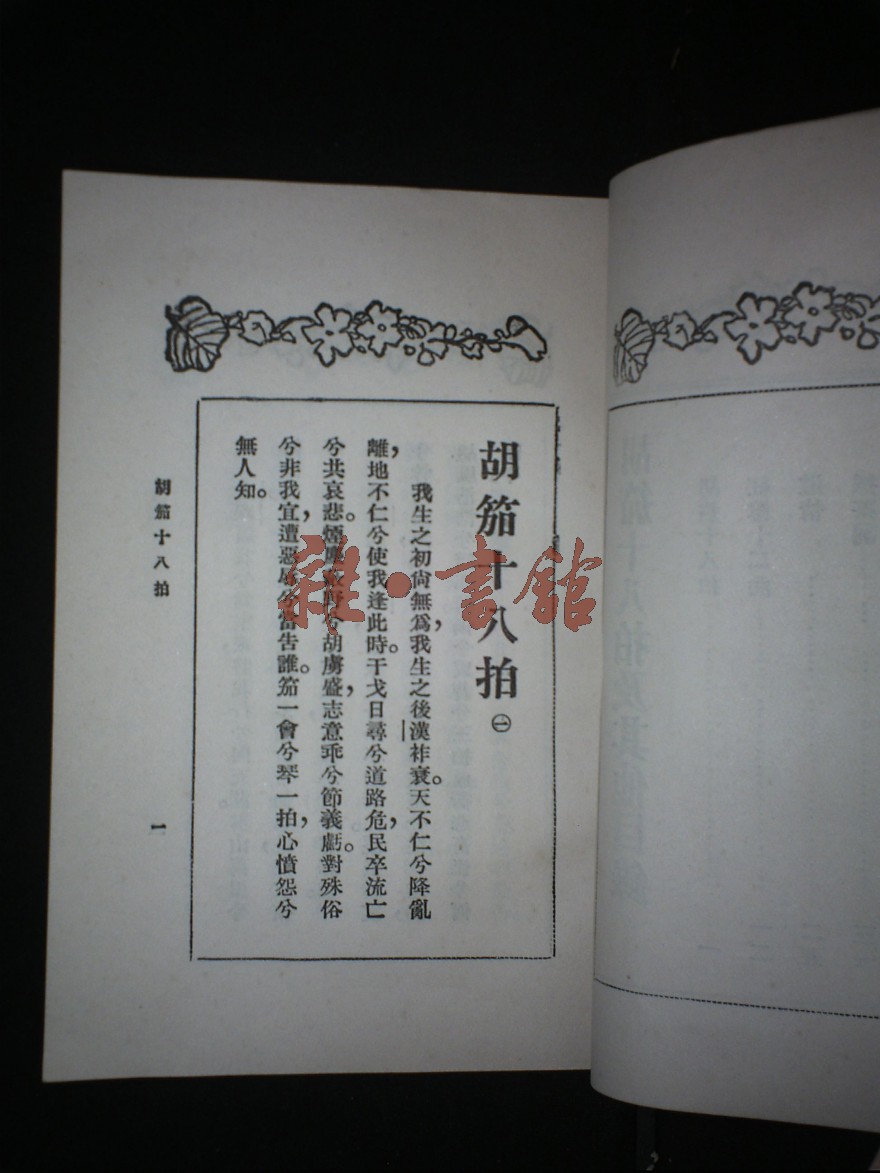 胡笳十八拍㊀
我生之初尙無爲，我生之後漢祚衰。天不仁兮降亂
離，地不仁兮使我逢此時。干戈日尋兮道路危，民卒流亡
兮共哀悲。煙塵蔽野兮胡虜盛，志意乖兮節義虧。對殊俗
兮非我宜，遭惡辱兮當告誰。笳一會兮琴一拍，心憤怨兮
無人知。
胡笳十八拍
一
雜·書館